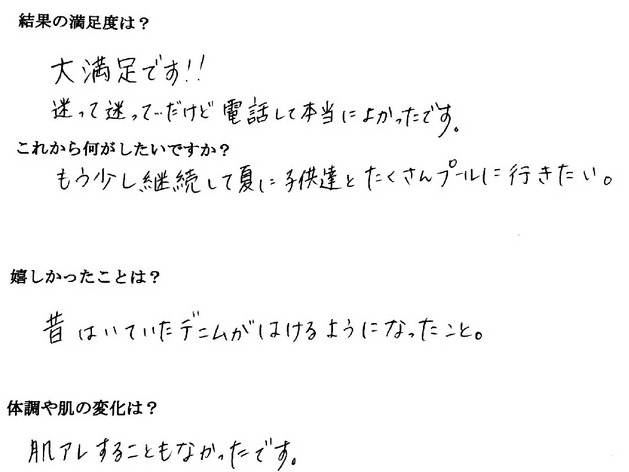 結果の満足度は？
大満足です!!
迷って迷って…だけど電話して本当によかったです。
これから何がしたいですか？
もう少し継続して夏に子供達とたくさんプールに行きたい。
嬉しかったことは？
昔はいていたデニムがはけるようになったこと。
体調や肌の変化は？
肌アレすることもなかったです。